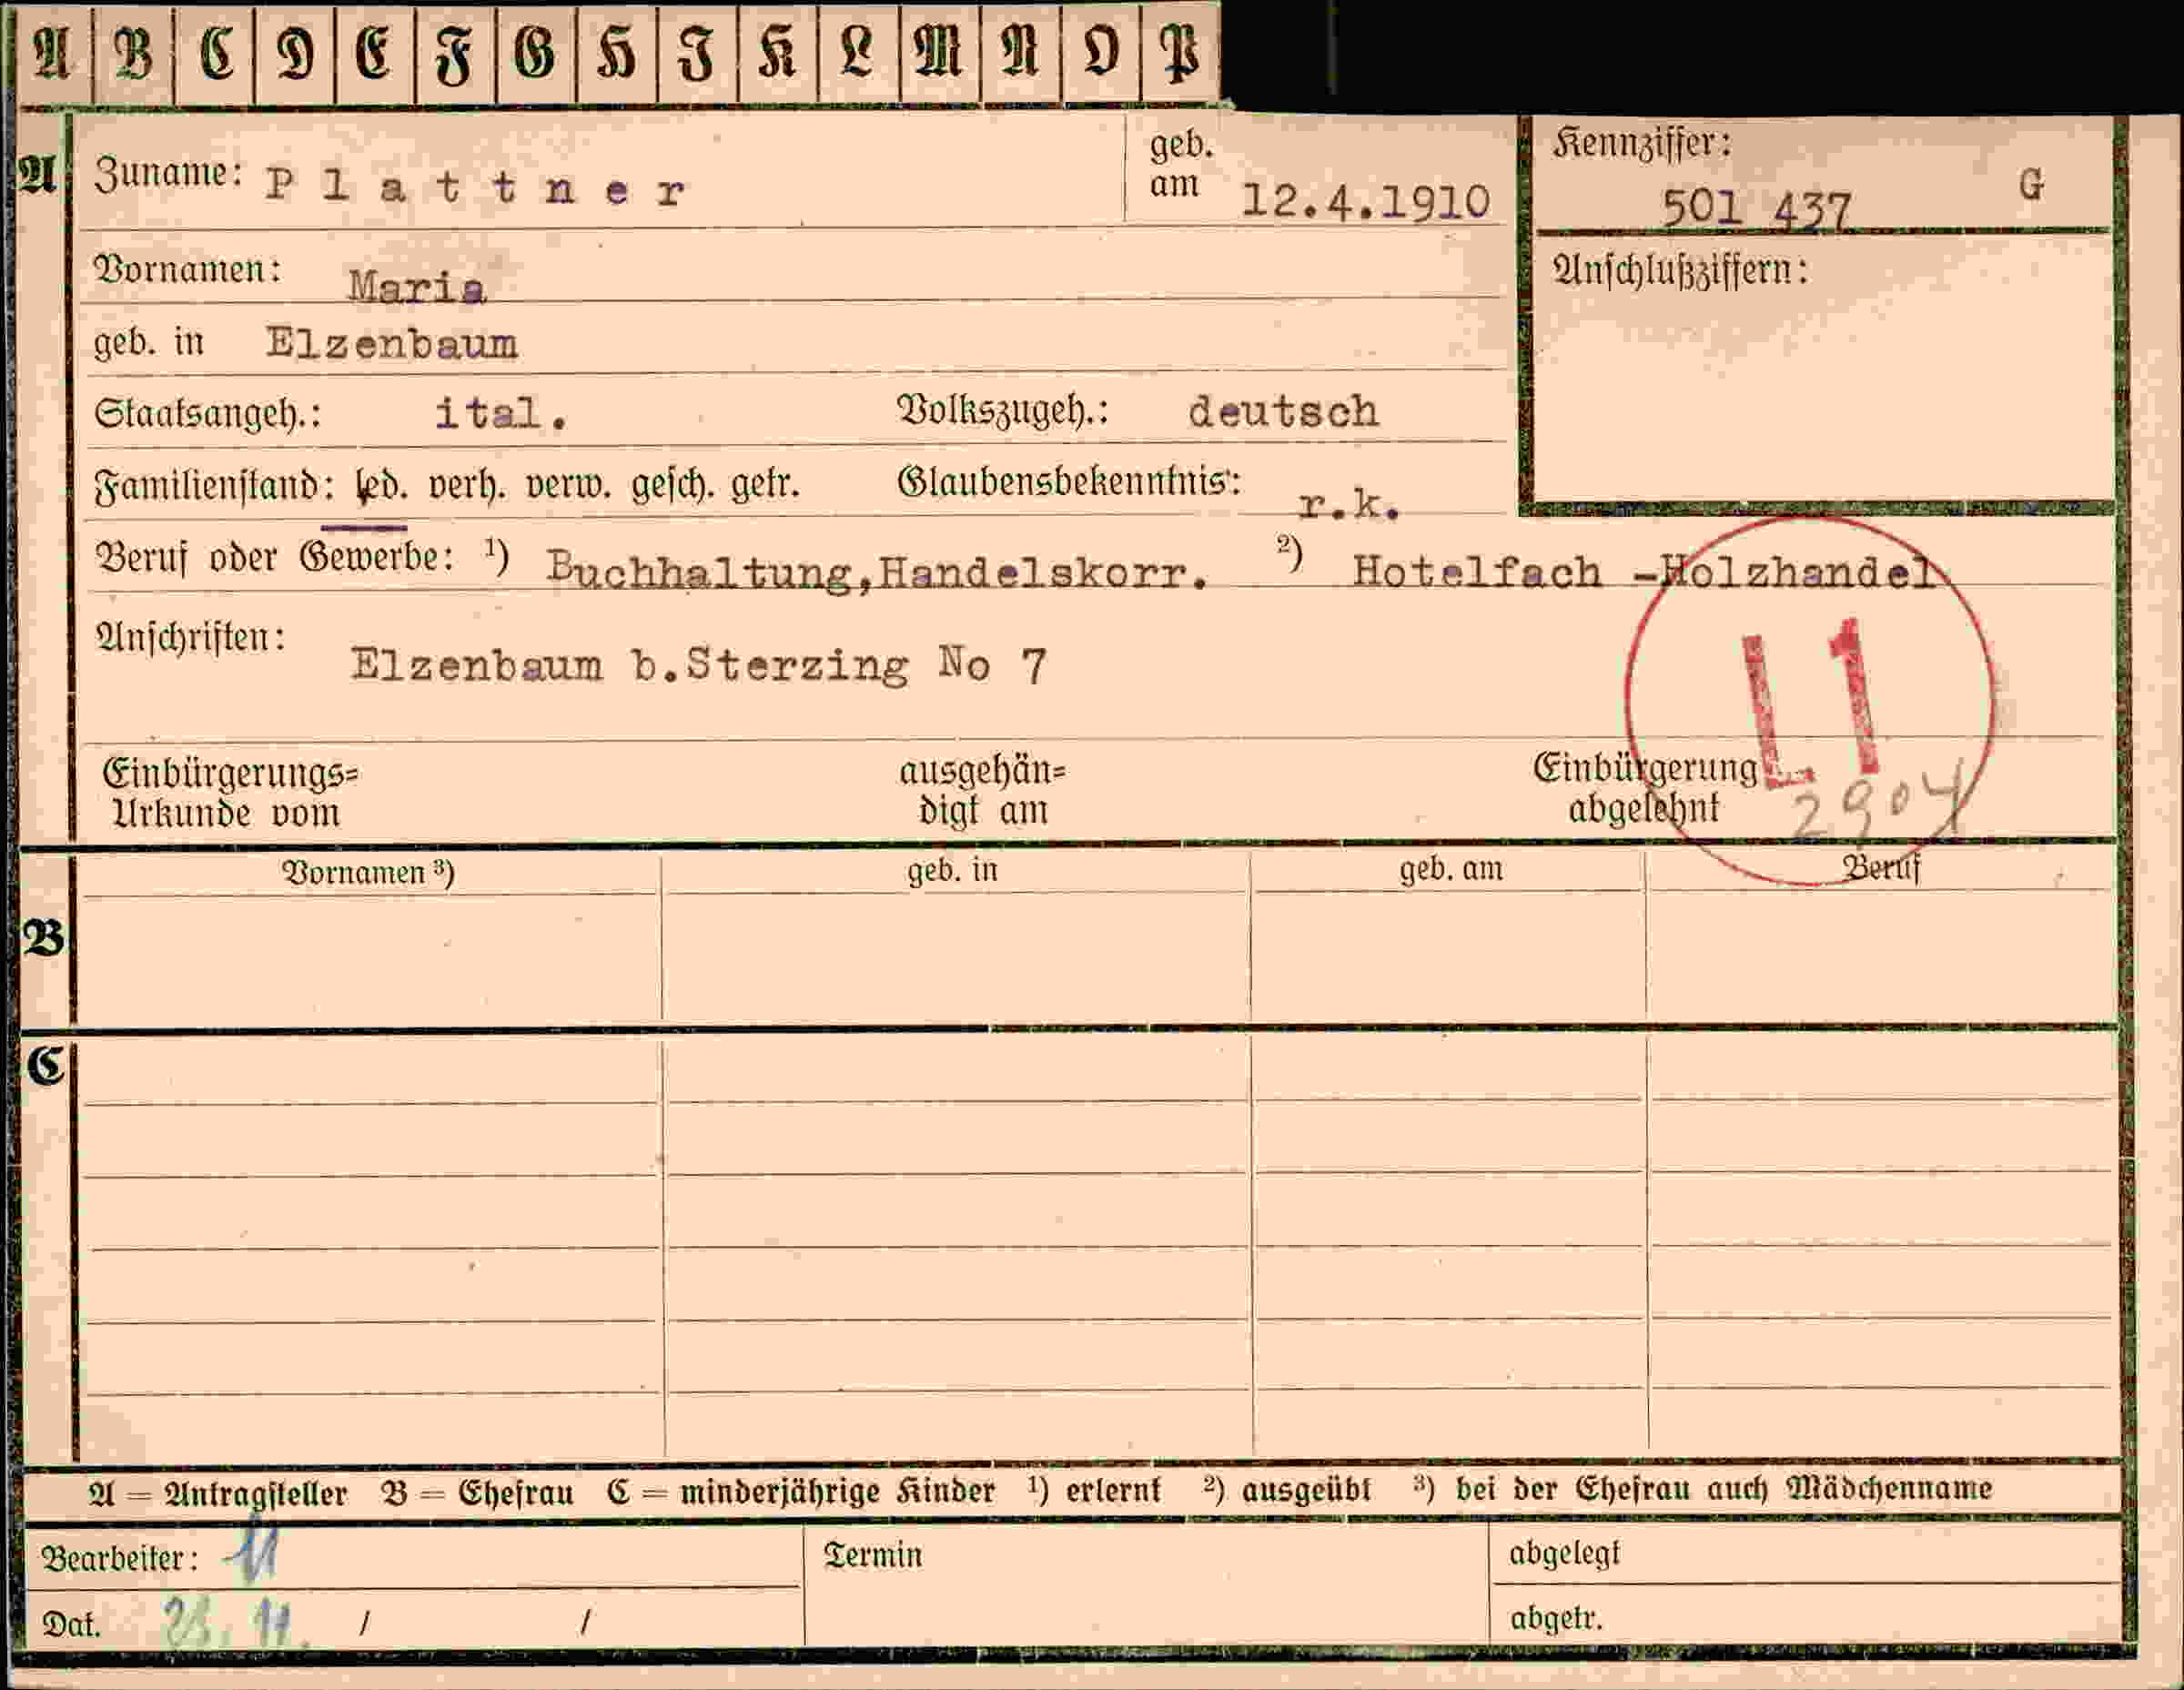 A B C D E F G H I K L M N O P
A Zuname: Plattner geb. am 12.4.1910 Kennziffer: 501 437 G
Vornamen: Maria Anschlußziffern:
geb. in Elzenbaum
Staatsangeh.: ital. Volkszugeh.: deutsch
Familienstand: led. verh. verw. gesch. getr. Glaubensbekenntnis: r.k.
Beruf oder Gewerbe: ¹) Buchhaltung,Handelskorr. ²) Hotelfach -Holzhandel
Anschriften: Elzenbaum b.Sterzing No 7
L1
Einbürgerungs= ausgehän= Einbürgerung
Urkunde vom digt am abgelehnt 2904
Vornamen ³) geb. in geb. am Beruf
B
C
A = Antragsteller B = Ehefrau C = minderjährige Kinder ¹) erlernt ²) ausgeübt ³) bei der Ehefrau auch Mädchenname
Bearbeiter: Termin abgelegt
Dat. 11. / / abgetr.